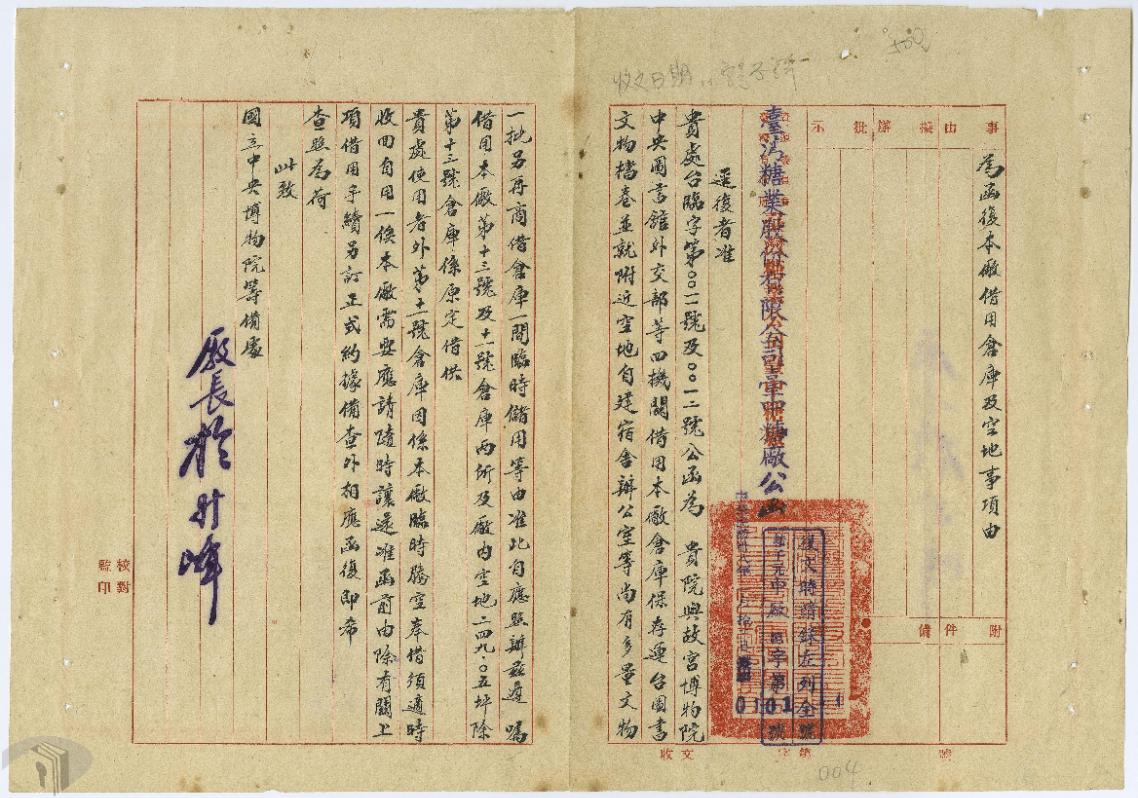 收文日期
事由
擬辦
批示
附件
備
為函復本廠借用倉庫及空地事項由
臺灣糖業股份有限公司臺中糖廠公函
復文時請錄左列全號
逕復者准
貴處台臨字第〇〇一號及〇〇一二號公函為　貴院與故宮博物院
中央圖書館外交部等四機關借用本廠倉庫保存運台圖書
文物檔卷並就附近空地自建宿舍辦公室等尚有多量文物
一批另再商借倉庫一間臨時儲用等由准此自應照辦茲遵　囑
借用本廠第十三號及十一號倉庫兩所及廠內空地二四九.〇五坪除
第十三號倉庫係原定借供
貴處使用者外第十一號倉庫因係本廠臨時騰空奉借須適時
收回自用一俟本廠需要應請隨時讓還准函前由除有關上
項借用手續另訂正式約據備查外相應函復即希
查照為荷
此致
國立中央博物院籌備處
廠長於升峰
校對
監印
收文
字第
號
004